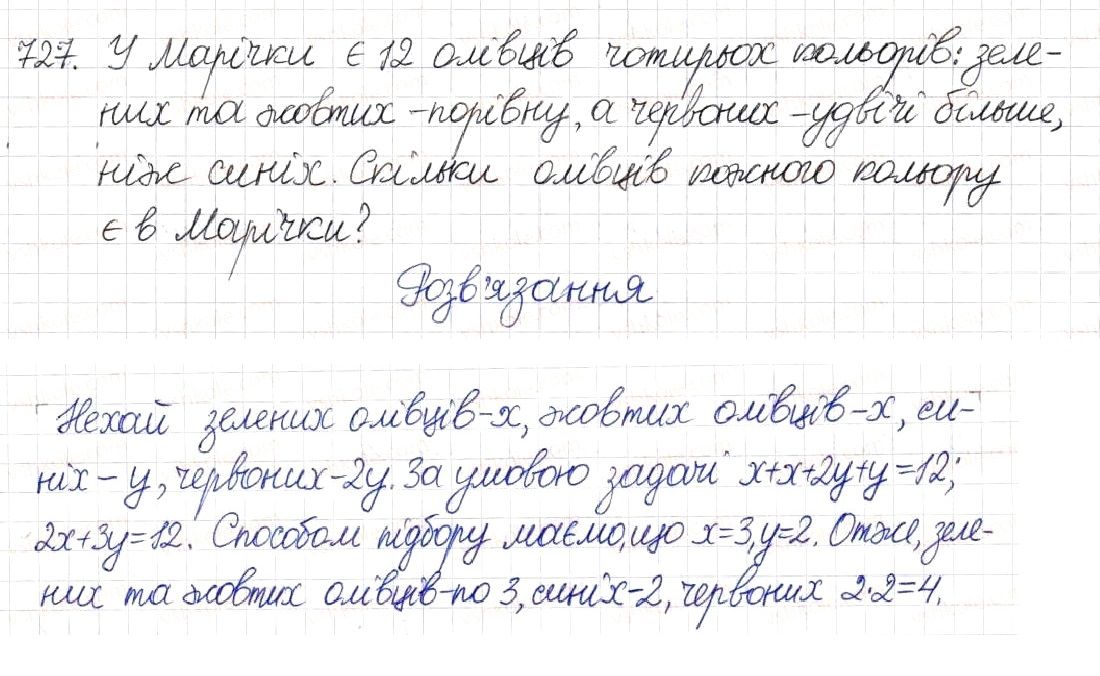 727. У Марічки є 12 олівців чотирьох кольорів: зеле-
них та жовтих - порівну, а червоних - удвічі більше,
ніж синіх. Скільки олівців кожного кольору
є в Марічки?
Розв'язання
Нехай зелених олівців - x, жовтих олівців - x, си-
ніх - y, червоних - 2y. За умовою задачі x+x+2y+y=12;
2x+3y=12. Способом підбору маємо, що x=3, y=2. Отже, зеле-
них та жовтих олівців - по 3, синіх - 2, червоних 2·2=4.